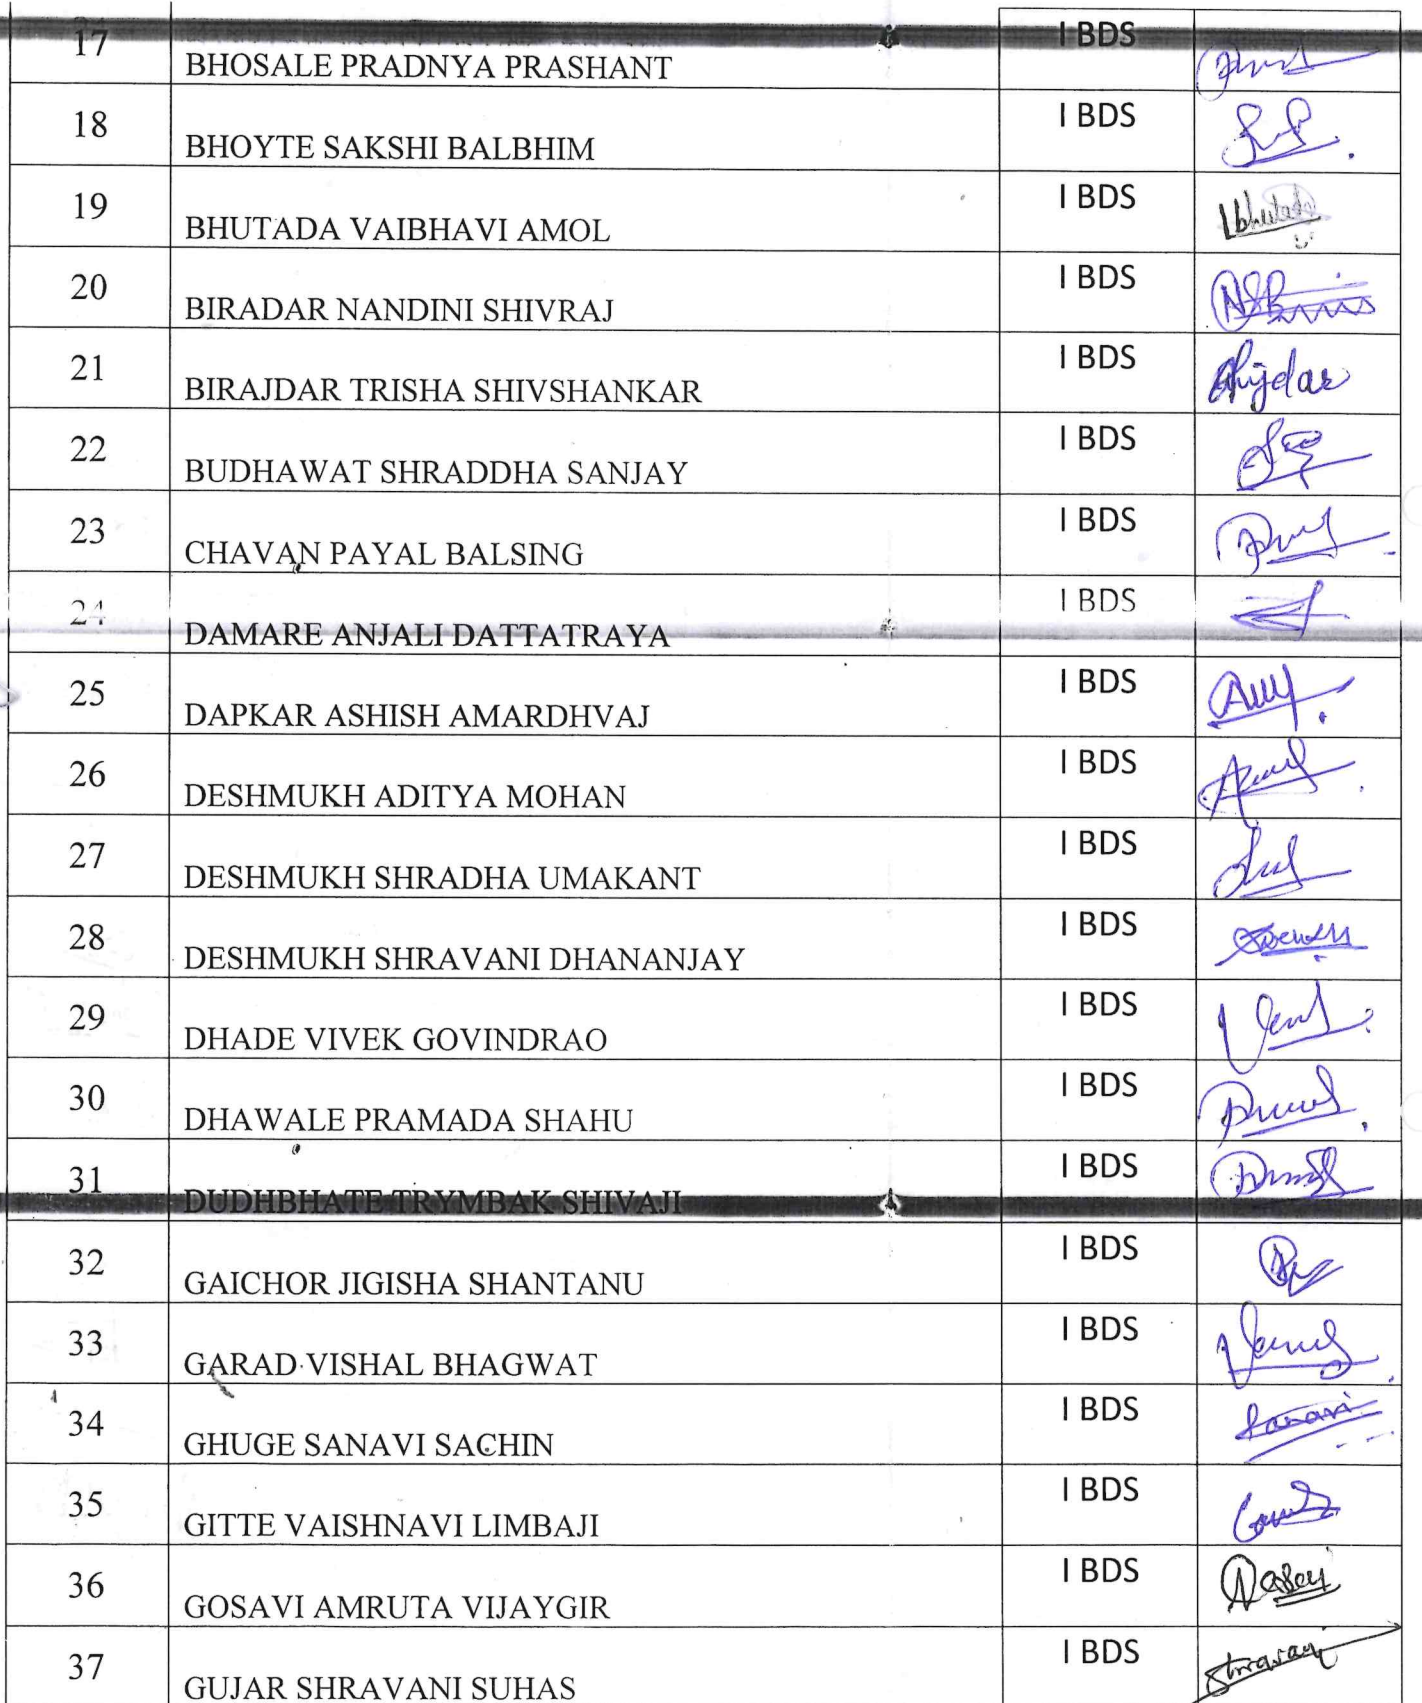 17 BHOSALE PRADNYA PRASHANT I BDS
18 BHOYTE SAKSHI BALBHIM I BDS
19 BHUTADA VAIBHAVI AMOL I BDS
20 BIRADAR NANDINI SHIVRAJ I BDS
21 BIRAJDAR TRISHA SHIVSHANKAR I BDS
22 BUDHAWAT SHRADDHA SANJAY I BDS
23 CHAVAN PAYAL BALSING I BDS
24 DAMARE ANJALI DATTATRAYA I BDS
25 DAPKAR ASHISH AMARDHVAJ I BDS
26 DESHMUKH ADITYA MOHAN I BDS
27 DESHMUKH SHRADHA UMAKANT I BDS
28 DESHMUKH SHRAVANI DHANANJAY I BDS
29 DHADE VIVEK GOVINDRAO I BDS
30 DHAWALE PRAMADA SHAHU I BDS
31 DUDHBHATE TRYMBAK SHIVAJI I BDS
32 GAICHOR JIGISHA SHANTANU I BDS
33 GARAD VISHAL BHAGWAT I BDS
34 GHUGE SANAVI SACHIN I BDS Sanavi
35 GITTE VAISHNAVI LIMBAJI I BDS
36 GOSAVI AMRUTA VIJAYGIR I BDS
37 GUJAR SHRAVANI SUHAS I BDS